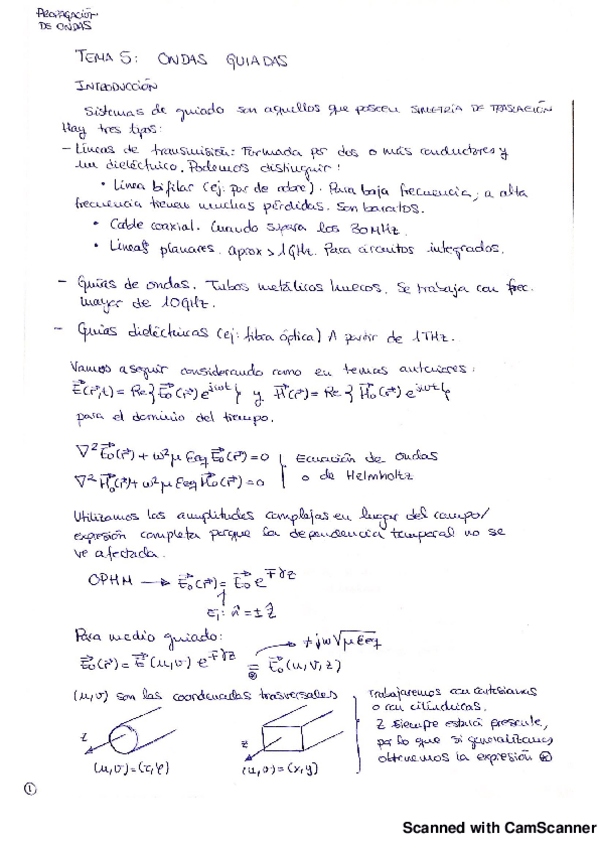 PROPAGACIÓN
DE ONDAS
TEMA 5: ONDAS GUIADAS
INTRODUCCIÓN
Sistemas de guiado son aquellos que poseen SIMETRÍA DE TRASLACIÓN
Hay tres tipos:
- Líneas de transmisión: Formada por dos o más conductores y
un dieléctrico. Podemos distinguir:
• Línea bifilar (ej: par de cobre). Para baja frecuencia; a alta
frecuencia tienen muchas pérdidas. Son baratos.
• Cable coaxial. Cuando supera los 30MHz.
• Líneas planares. aprox > 1GHz. Para circuitos integrados.
- Guías de ondas. Tubos metálicos huecos. Se trabaja con frec.
mayor de 10GHz.
- Guías dieléctricas (ej: fibra óptica) A partir de 1THz.
Vamos a seguir considerando como en temas anteriores:
E⃗(r⃗,t) = Re{E⃗₀(r⃗) e^jωt} y H⃗(r⃗) = Re{H⃗₀(r⃗) e^jωt}
para el dominio del tiempo.
∇²E⃗₀(r⃗) + ω²μ εeq E⃗₀(r⃗) = 0 | Ecuación de ondas
∇²H⃗₀(r⃗) + ω²μ εeq H⃗₀(r⃗) = 0 | o de Helmholtz
Utilizamos las amplitudes complejas en lugar del campo/
expresión completa porque la dependencia temporal no se
ve afectada.
OPHM → E⃗₀(r⃗) = E⃗₀ e^∓γz
ej: n̂ = ± ẑ
Para medio guiado: ≠ jω√μεeq
E⃗₀(r⃗) = E⃗(u,v) e^∓γz = E⃗₀(u,v,z)
(u,v) son las coordenadas trasversales
Trabajaremos con cartesianas
o con cilíndricas.
z siempre estará presente,
por lo que si generalizamos
obtenemos la expresión ⊛
z
(u,v) = (r,φ)
z
(u,v) = (x,y)
1
Scanned with CamScanner